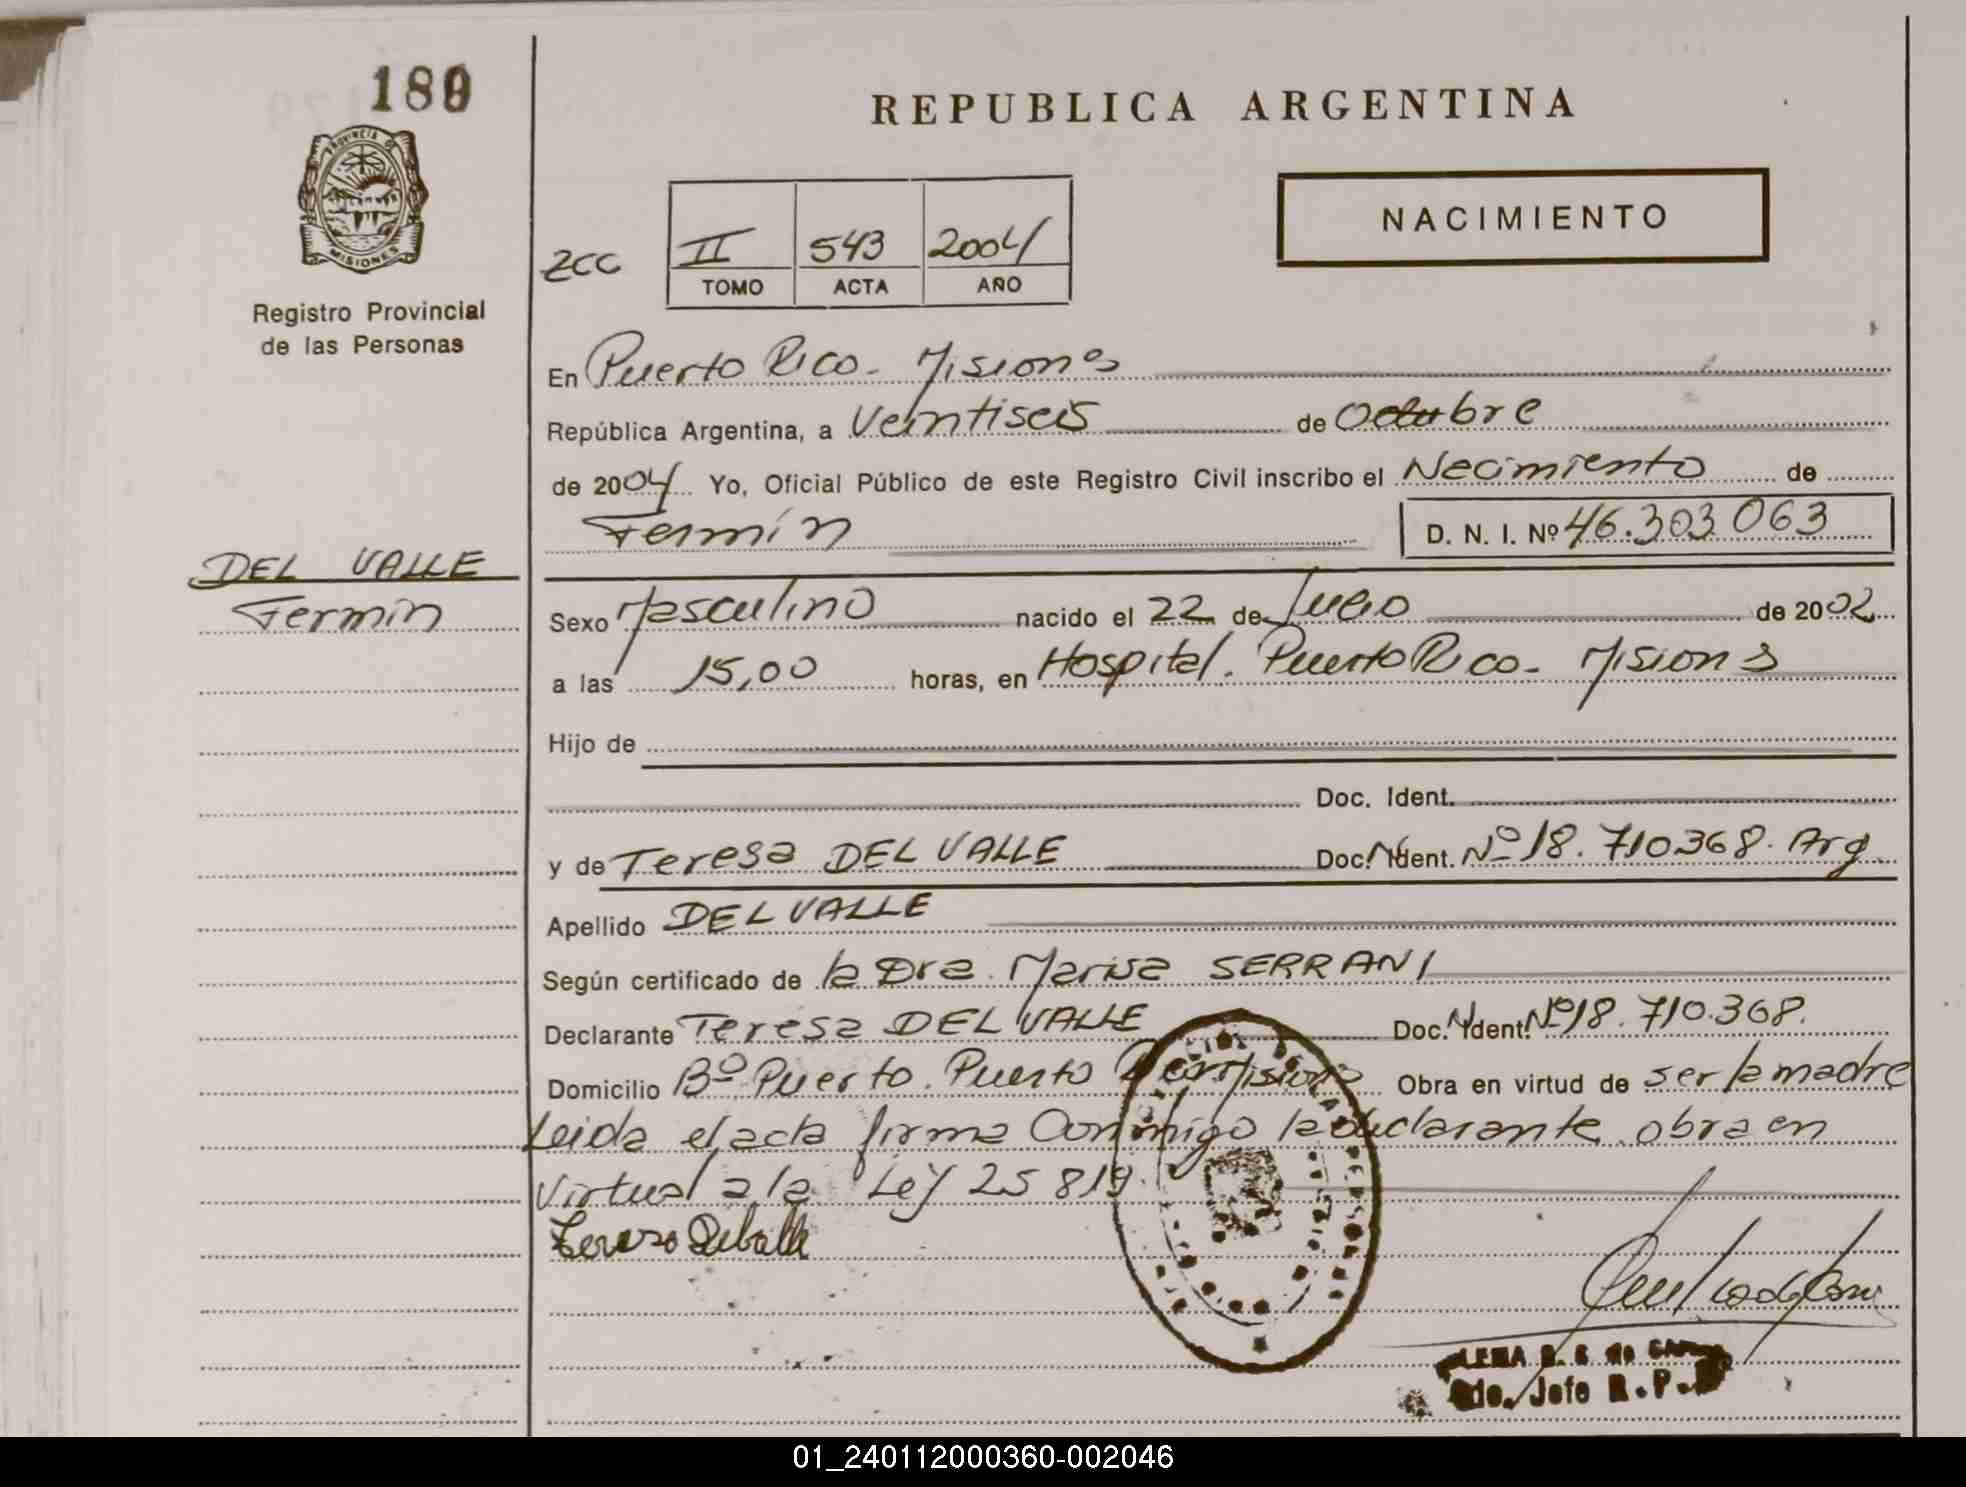 189
REPUBLICA ARGENTINA
PROVINCIA DE
MISIONES
Registro Provincial
de las Personas
NACIMIENTO
zcc
II 543 2004
TOMO ACTA AÑO
En Puerto Rico - Misiones
República Argentina, a Veintiseis de Octubre
de 2004 Yo, Oficial Público de este Registro Civil inscribo el Nacimiento de
Fermín D. N. I. Nº 46.303.063
DEL VALLE
Fermin
Sexo Masculino nacido el 22 de Julio de 2002
a las 15,00 horas, en Hospital. Puerto Rico - Misiones
Hijo de
Doc. Ident.
y de Teresa DEL VALLE Doc. Ident. Nº 18.710.368. Arg
Apellido DEL VALLE
Según certificado de la Dra. Marisa SERRANI
Declarante Teresa DEL VALLE Doc. Ident. Nº 18.710.368.
Domicilio Bº Puerto. Puerto Rico Misiones Obra en virtud de ser la madre
Leida el acta firma Conmigo la declarante obra en
virtual a la Ley 25 819.
Teresa Delballe
Jefe R.P.
01_240112000360-002046